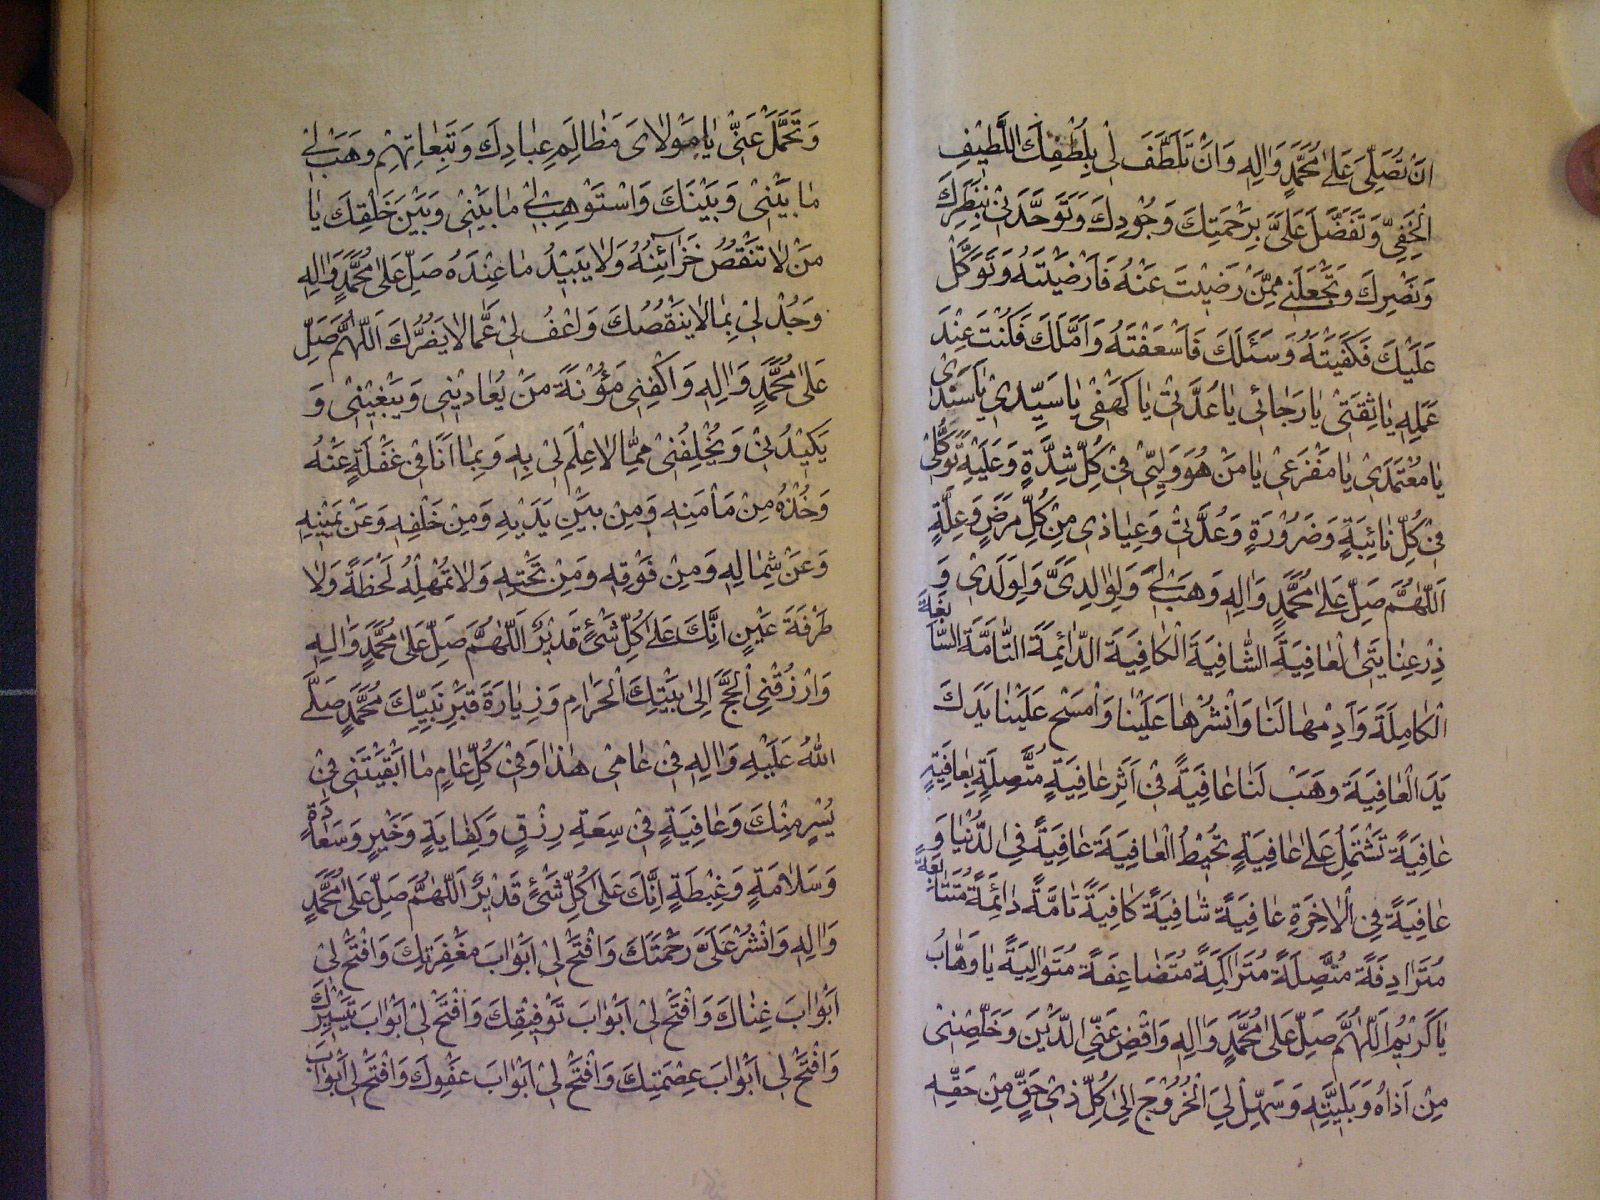 اَنْ تُصَلِّىَ عَلىٰ مُحَمَّدٍ وَاٰلِهِ وَاَنْ تَلَطَّفَ لىٖ بِلُطْفِكَ اللَّطيٖفِ
الْخَفِىِّ وَتَفَضَّلَ عَلَىَّ بِرَحْمَتِكَ وَجُودِكَ وَتَوَحَّدَنىٖ بِنَظَرِكَ
وَنَصْرِكَ وَتَجْعَلَنىٖ مِمَّنْ رَضيٖتَ عَنْهُ فَاَرْضَيْتَهُ وَتَوَكَّلَ
عَلَيْكَ فَكَفَيْتَهُ وَسَئَلَكَ فَاَسْعَفْتَهُ وَاَمَّلَكَ فَكُنْتَ عِنْدَ
عَمَلِهِ يٰا ثِقَتىٖ يٰا رَجٰائىٖ يٰا عُدَّتىٖ يٰا كَهَفىٖ يٰا سَيِّدىٖ يٰا سَنَدىٖ
يٰا مُعْتَمَدىٖ يٰا مَفْزَعىٖ يٰا مَنْ هُوَ وَلِيّىٖ فىٖ كُلِّ شِدَّةٍ وَعَلَيْهِ تَوَكُّلىٖ
فىٖ كُلِّ نٰائِبَةٍ وَضَرُوْرَةٍ وَعُدَّتىٖ وَعِيٰاذىٖ مِنْ كُلِّ مَرَضٍ وَعِلَّةٍ
اَللّٰهُمَّ صَلِّ عَلىٰ مُحَمَّدٍ وَاٰلِهِ وَهَبْ لىٖ وَلِوٰالِدَىَّ وَلِوَلَدىٖ وَ
ذِرْعِنٰايَتىٖ الْعٰافِيَةَ الشّٰافِيَةَ الْكٰافِيَةَ الدّٰائِمَةَ التّٰامَّةَ السّٰابِغَةَ
الْكٰامِلَةَ وَاَدِمْهٰا لَنٰا وَانْشُرْهٰا عَلَيْنٰا وَاَمْسَحْ عَلَيْنٰا يَدَكَ
يَدَ الْعٰافِيَةَ وَهَبْ لَنٰا عٰافِيَةً فىٖ اَثَرِ عٰافِيَةٍ مُتَّصِلَةٍ بِعٰافِيَةٍ
عٰافِيَةً تَشْتَمِلُ عَلىٰ عٰافِيَةٍ تُحيٖطُ الْعٰافِيَةَ عٰافِيَةً فىٖ الدُّنْيٰا وَ
عٰافِيَةً فِى الْاٰخِرَةِ عٰافِيَةً شٰافِيَةً كٰافِيَةً تٰامَّةً دٰائِمَةً مُتَتٰابِعَةً
مُتَرٰادِفَةً مُتَّصِلَةً مُتَرٰاكِمَةً مُتَضٰاعِفَةً مُتَوٰالِيَةً يٰا وَهّٰابُ
يٰا كَريٖمُ اَللّٰهُمَّ صَلِّ عَلىٰ مُحَمَّدٍ وَاٰلِهِ وَاقْضِ عَنِّى الدَّيْنَ وَخَلِّصْنىٖ
مِنْ اَذٰاهُ وَبَلِيَّتِهِ وَسَهِّلْ لِىَ الْخُرُوْجَ اِلىٰ كُلِّ ذىٖ حَقٍّ مِنْ حَقِّهِ
وَتَحَمَّلْ عَنّىٖ يٰا مَوْلٰاىَ مَظٰالِمَ عِبٰادِكَ وَتَبِعٰاتِهِمْ وَهَبْ لىٖ
مٰا بَيْنىٖ وَبَيْنَكَ وَاسْتَوْهِبْ لىٖ مٰا بَيْنىٖ وَبَيْنَ خَلْقِكَ يٰا
مَنْ لٰا تَنْقُصُ خَزٰائِنُهُ وَلٰا يَبيٖدُ مٰا عِنْدَهُ صَلِّ عَلىٰ مُحَمَّدٍ وَاٰلِهِ
وَجُدْ لىٖ بِمٰا لٰا يَنْقُصُكَ وَاعْفُ لىٖ عَمّٰا لٰا يَضُرُّكَ اَللّٰهُمَّ صَلِّ
عَلىٰ مُحَمَّدٍ وَاٰلِهِ وَاكْفِنىٖ مَؤُنَةَ مَنْ يُعٰاديٖنىٖ وَيَبْغيٖنىٖ وَ
يَكيٖدُنىٖ وَيُخْلِفُنىٖ مِمّٰا لٰا عِلْمَ لىٖ بِهِ وَبِمٰا اَنَا فىٖ غَفْلَةٍ عَنْهُ
وَخُذْهُ مِنْ مَأْمَنِهِ وَمِنْ بَيْنِ يَدَيْهِ وَمِنْ خَلْفِهِ وَعَنْ يَميٖنِهِ
وَعَنْ شِمٰالِهِ وَمِنْ فَوْقِهِ وَمِنْ تَحْتِهِ وَلٰا تُمْهِلْهُ لَحْظَةً وَلٰا
طَرْفَةَ عَيْنٍ اِنَّكَ عَلىٰ كُلِّ شَىْءٍ قَديٖرٌ اَللّٰهُمَّ صَلِّ عَلىٰ مُحَمَّدٍ وَاٰلِهِ
وَارْزُقْنىٖ الْحَجَّ اِلىٰ بَيْتِكَ الْحَرٰامِ وَزِيٰارَةَ قَبْرِ نَبِيِّكَ مُحَمَّدٍ صَلَّى
اللّٰهُ عَلَيْهِ وَاٰلِهِ فىٖ عٰامىٖ هٰذٰا وَفىٖ كُلِّ عٰامٍ مٰا اَبْقَيْتَنىٖ فىٖ
يُسْرٍ مِنْكَ وَعٰافِيَةٍ فىٖ سِعَةِ رِزْقٍ وَكِفٰايَةٍ وَخَيْرٍ وَسَعٰادَةٍ
وَسَلٰامَةٍ وَغِبْطَةٍ اِنَّكَ عَلىٰ كُلِّ شَىْءٍ قَديٖرٌ اَللّٰهُمَّ صَلِّ عَلىٰ مُحَمَّدٍ
وَاٰلِهِ وَانْشُرْ عَلَىَّ رَحْمَتَكَ وَافْتَحْ لىٖ اَبْوٰابَ مَغْفِرَتِكَ وَافْتَحْ لىٖ
اَبْوٰابَ غِنٰاكَ وَافْتَحْ لىٖ اَبْوٰابَ تَوْفيٖقِكَ وَافْتَحْ لىٖ اَبْوٰابَ تَيْسيٖرِكَ
وَافْتَحْ لىٖ اَبْوٰابَ عِصْمَتِكَ وَافْتَحْ لىٖ اَبْوٰابَ عَفْوِكَ وَافْتَحْ لىٖ اَبْوٰابَ